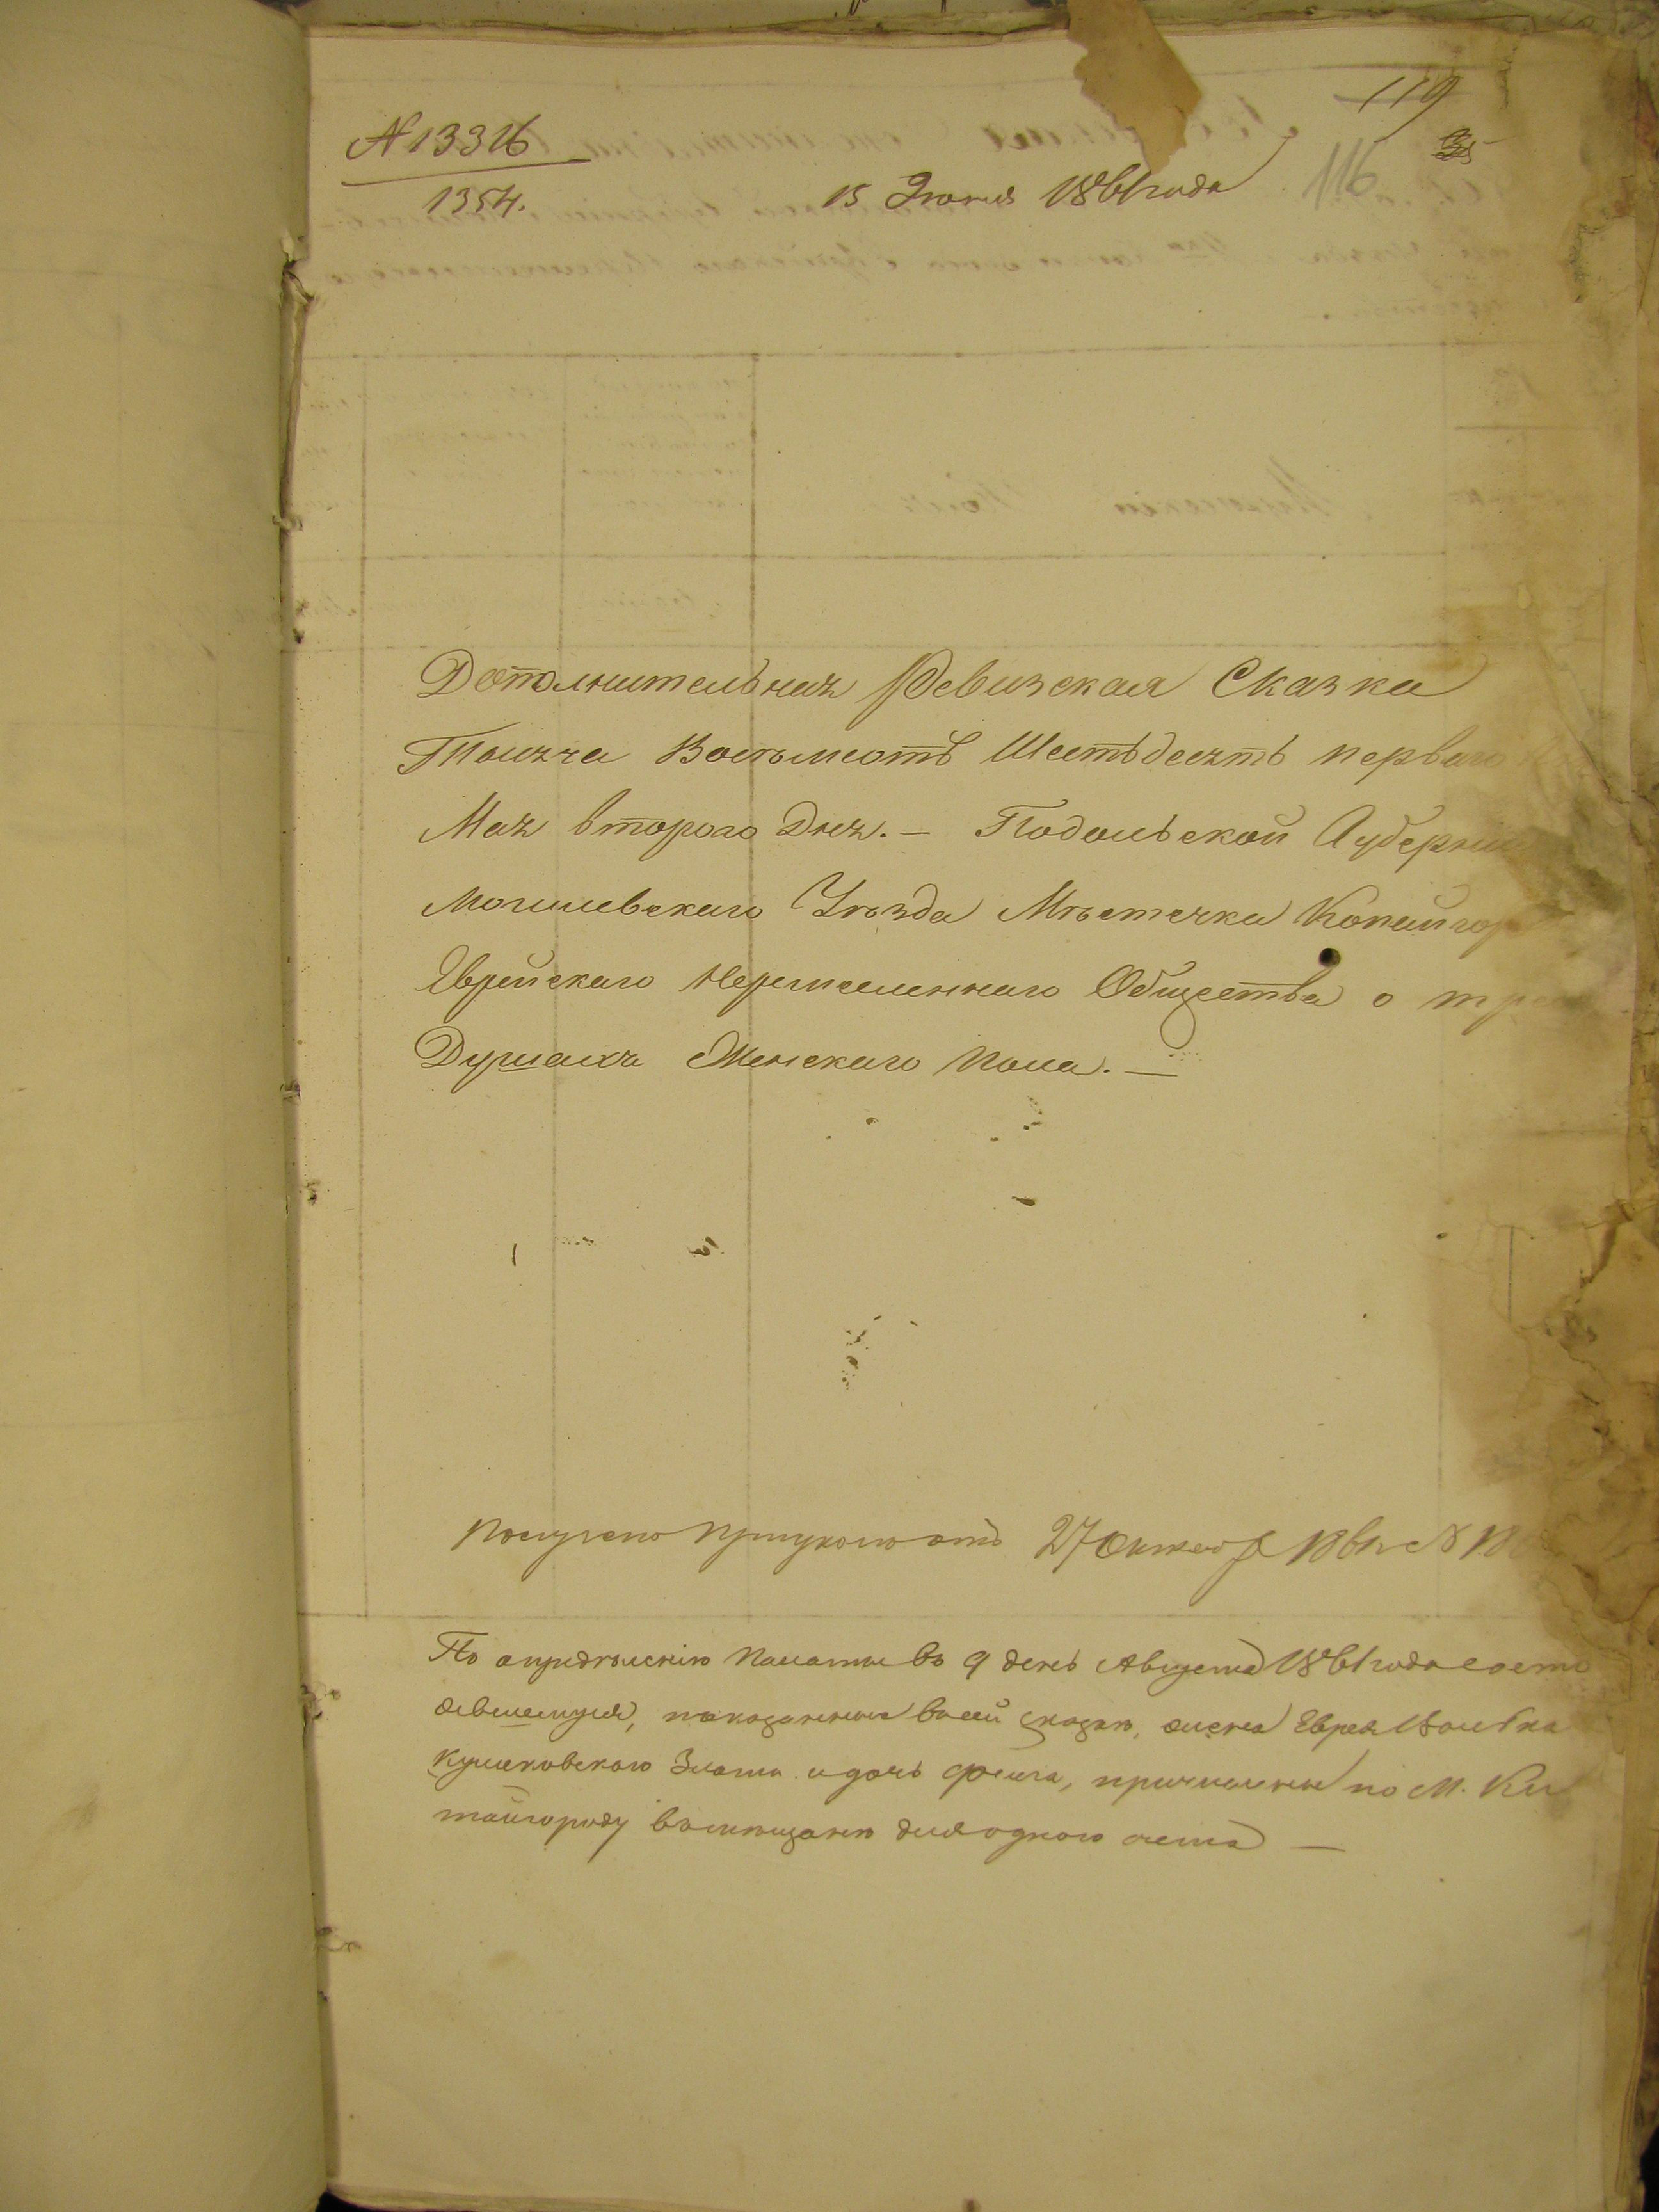 119
35
116
№ 13316
1354.
15 Июня 1861 года
Дополнительная Ревизская Сказка
Тысяча Восъмсотъ Шестьдесятъ перваго
Мая втораго Дня. — Подольской Губерніи
Могилевскаго Уѣзда Мѣстечка Копайгор
Еврейскаго Общества о тре
Душахъ Женскаго Пола. —
Получено отъ 27 Октяб
По опредѣленію Палаты въ 9 день Августа 1861 года состо
явшемуся, показанныя въ сей сказкѣ, жена Еврея Волька
Кушековского Злата и дочь Фейга, причислены по м. Ки
тайгороду для одного счета —